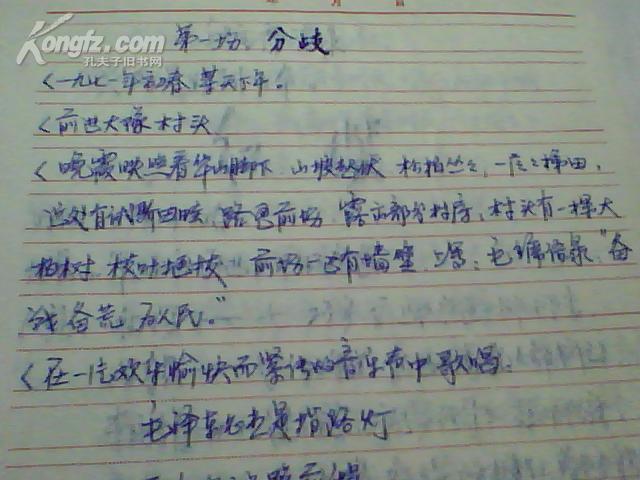 Kongfz.com
孔夫子旧书网
年 月 日
第一场 分歧
〈一九七一年初春,某天下午。
〈前进大队村头
〈晚霞映照着华山脚下 山坡起伏 松柏丛丛,一片片梯田,
远处有 路 前场 露出部分村房,村头有一棵大
柏树 枝叶 前场 还有墙壁 上写:毛主席语录"备
战备荒 为人民。"
〈在一片欢乐愉快而紧 的音乐声中歌唱。
毛泽东 是指路灯